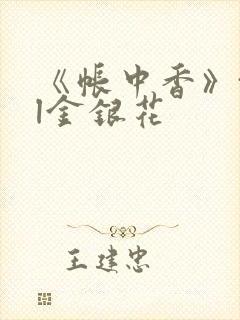 《帐中香》
|金银花
王建忠